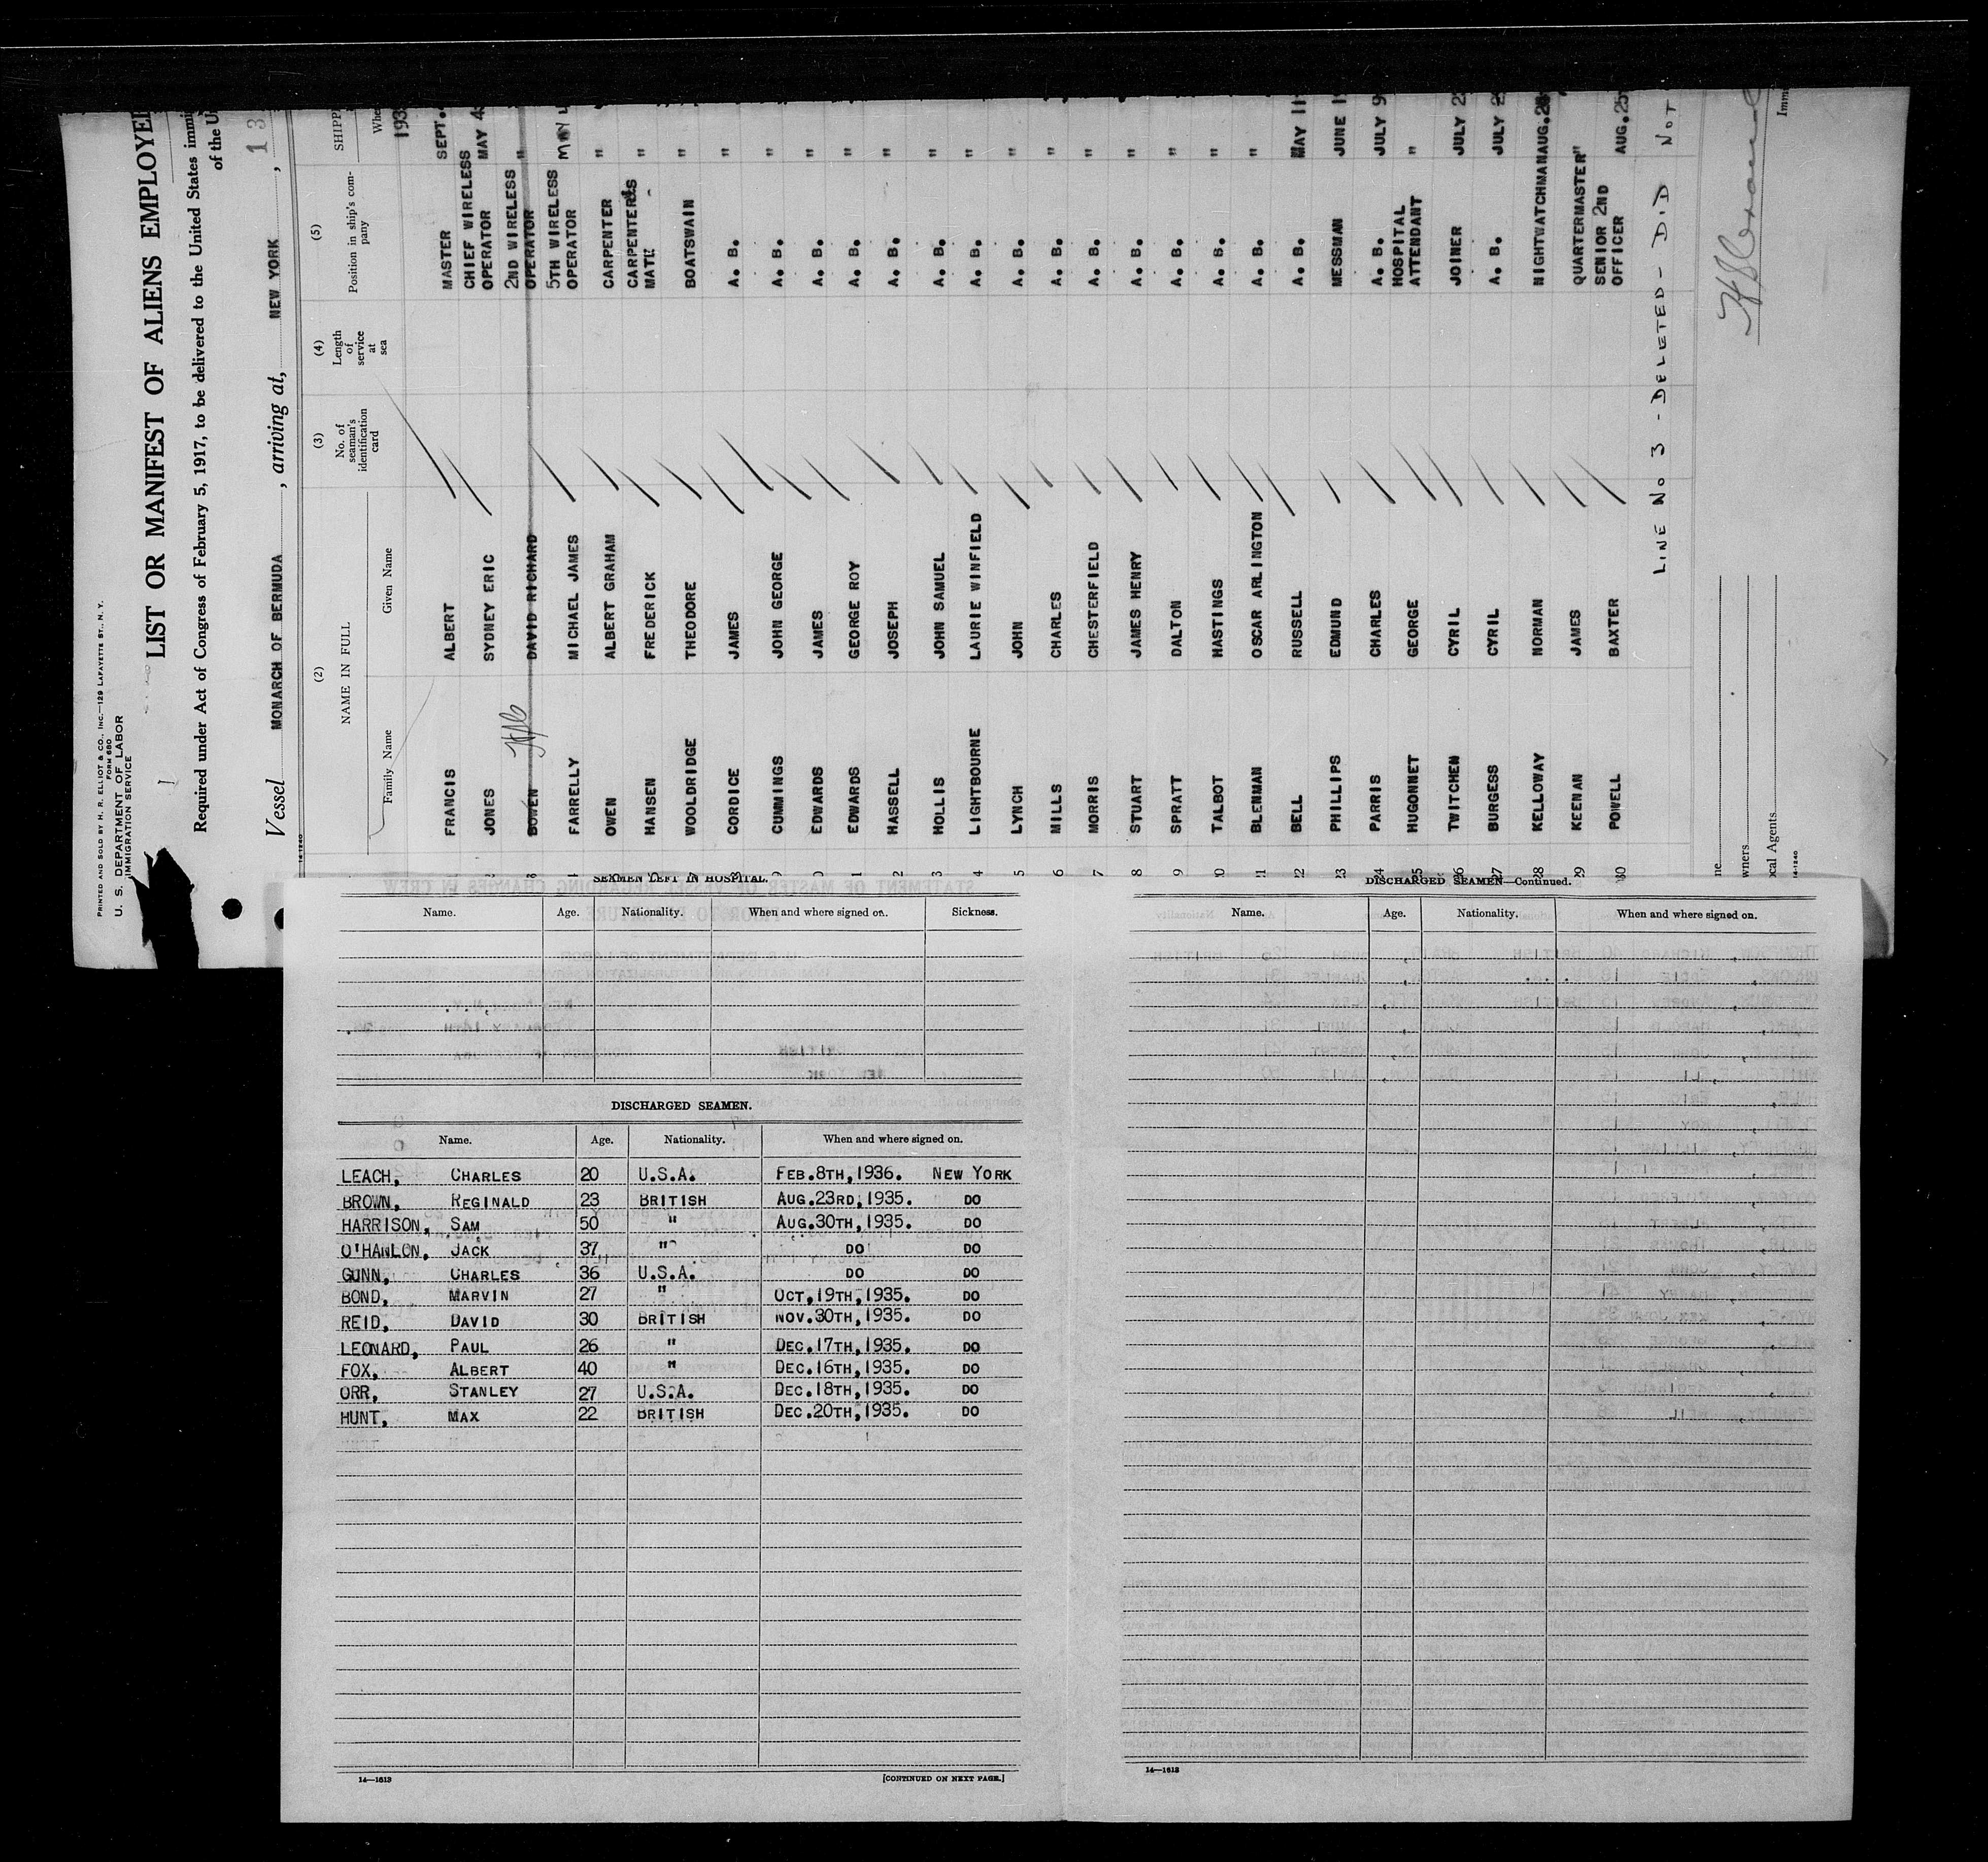 PRINTED AND SOLD BY H. R. ELLIOT & CO., INC.—129 LAFAYETTE ST., N. Y.
FORM 680
U. S. DEPARTMENT OF LABOR
IMMIGRATION SERVICE
LIST OR MANIFEST OF ALIENS EMPLOYE
Required under Act of Congress of February 5, 1917, to be delivered to the United States immi
of the U
Vessel MONARCH OF BERMUDA, arriving at, NEW YORK, 13
14-1240
(2) (3) (4) (5)
NAME IN FULL No. of seaman's identification card Length of service at sea Position in ship's company SHIPP
Family Name Given Name Whe
193
FRANCIS ALBERT MASTER SEPT.
JONES SYDNEY ERIC CHIEF WIRELESS OPERATOR MAY 4
3 BOWEN DAVID RICHARD 2ND WIRELESS OPERATOR "
FARRELLY MICHAEL JAMES 5TH WIRELESS OPERATOR MAY
OWEN ALBERT GRAHAM CARPENTER "
HANSEN FREDERICK CARPENTERS MATE "
WOOLDRIDGE THEODORE BOATSWAIN "
CORDICE JAMES A. B. "
9 CUMMINGS JOHN GEORGE A. B. "
0 EDWARDS JAMES A. B. "
1 EDWARDS GEORGE ROY A. B. "
2 HASSELL JOSEPH A. B. "
3 HOLLIS JOHN SAMUEL A. B. "
4 LIGHTBOURNE LAURIE WINFIELD A. B. "
5 LYNCH JOHN A. B. "
6 MILLS CHARLES A. B. "
7 MORRIS CHESTERFIELD A. B. "
8 STUART JAMES HENRY A. B. "
9 SPRATT DALTON A. B. "
20 TALBOT HASTINGS A. B. "
21 BLENMAN OSCAR ARLINGTON A. B. "
22 BELL RUSSELL A. B. MAY 11
23 PHILLIPS EDMUND MESSMAN JUNE 1
24 PARRIS CHARLES A. B. JULY 9
25 HUGONNET GEORGE HOSPITAL ATTENDANT "
26 TWITCHEN CYRIL JOINER JULY 2
27 BURGESS CYRIL A. B. JULY 2
28 KELLOWAY NORMAN NIGHTWATCHMAN AUG.
29 KEENAN JAMES QUARTERMASTER "
30 POWELL BAXTER SENIOR 2ND OFFICER AUG.25
LINE No 3 - DELETED - DID NOT
ne
wners
ocal Agents
Imm
14-1240
SEAMEN LEFT IN HOSPITAL.
Name. Age. Nationality. When and where signed on. Sickness.
DISCHARGED SEAMEN.
Name. Age. Nationality. When and where signed on.
LEACH, CHARLES 20 U.S.A. FEB.8TH,1936. NEW YORK
BROWN, REGINALD 23 BRITISH AUG.23RD,1935. DO
HARRISON, SAM 50 " AUG.30TH,1935. DO
O'HANLON, JACK 37 " DO DO
GUNN, CHARLES 36 U.S.A. DO DO
BOND, MARVIN 27 " OCT,19TH,1935. DO
REID, DAVID 30 BRITISH NOV.30TH,1935. DO
LEONARD, PAUL 26 " DEC.17TH,1935. DO
FOX, ALBERT 40 " DEC.16TH,1935. DO
ORR, STANLEY 27 U.S.A. DEC.18TH,1935. DO
HUNT, MAX 22 BRITISH DEC.20TH,1935. DO
14—1613
[CONTINUED ON NEXT PAGE.]
DISCHARGED SEAMEN—Continued.
Name. Age. Nationality. When and where signed on.
14—1613